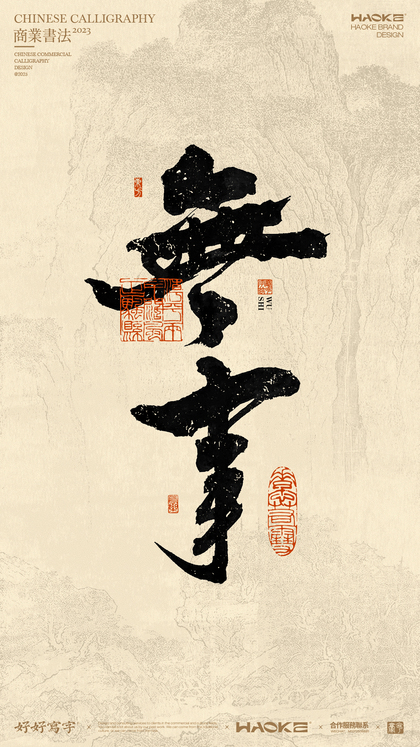 CHINESE CALLIGRAPHY
商業書法2023
CHINESE COMMERCIAL
CALLIGRAPHY
DESIGN
@2023
HAOKE
HAOKE BRAND
DESIGN
無事
WU
SHI
好好寫字
HAOKE
合作服務聯系